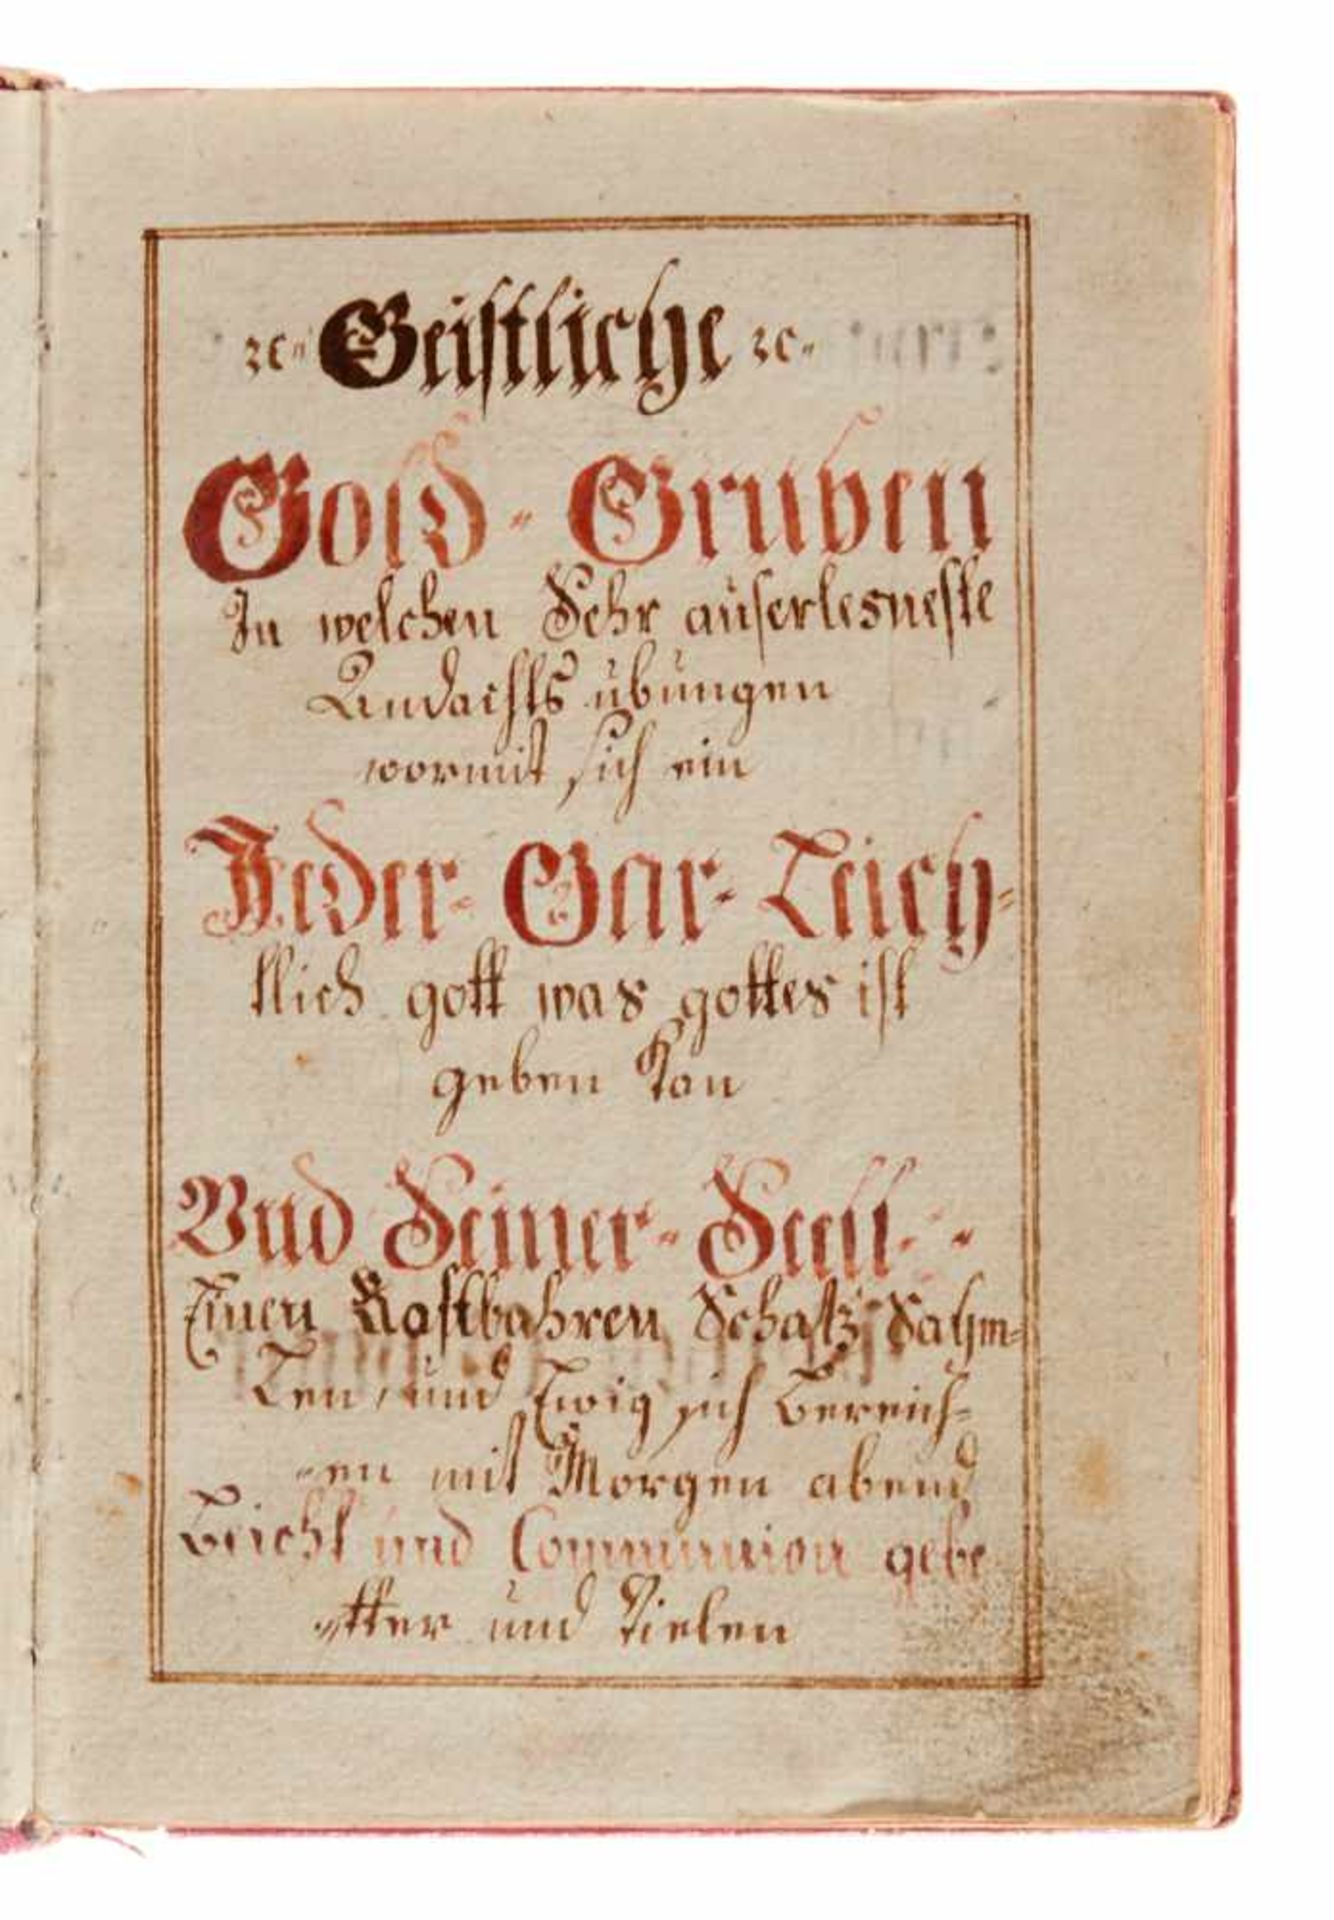 ꝛc⸗ Geistliche ꝛc⸗
Gold⸗Gruben
In welchen Sehr auserlesneste
Andachts übungen
wormit sich ein
Jeder⸗ Gar⸗ Leich⸗
tlich gott was gottes ist
geben kan
Vnd Seiner⸗ Seell⸗ ⸗
Einen Kostbahren Schatz Sahm⸗
Len, und Ewig sich Bereich⸗
⸗en mit Morgen abend
Beicht und Communion gebe
⸗tter und Vielen